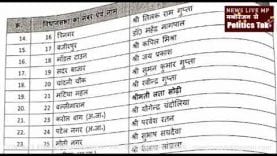 NEWS LIVE MP
मनोरंजन से
Politics Tak
क्र. विधानसभा का नंबर एवं नाम
14. 16 त्रिनगर श्री तिलक राम गुप्ता
15. 17 वजीरपुर डॉ॰ महेंद्र नागपाल
16. 18 मॉडल टाउन श्री कपिल मिश्रा
17. 19 सदर बाजार श्री जय प्रकाश
18. 20 चांदनी चौक श्री सुमन कुमार गुप्ता
19. 21 मटिया महल श्री रविन्द्र गुप्ता
20. 22 बल्लीमारान श्रीमती लता सोढ़ी
21. 23 करोल बाग (अ.जा.) श्री योगेन्द्र चंदोलिया
22. 24 पटेल नगर (अ.जा.) श्री प्रवेश रतन
23. 25 मोती नगर श्री सुभाष सचदेवा